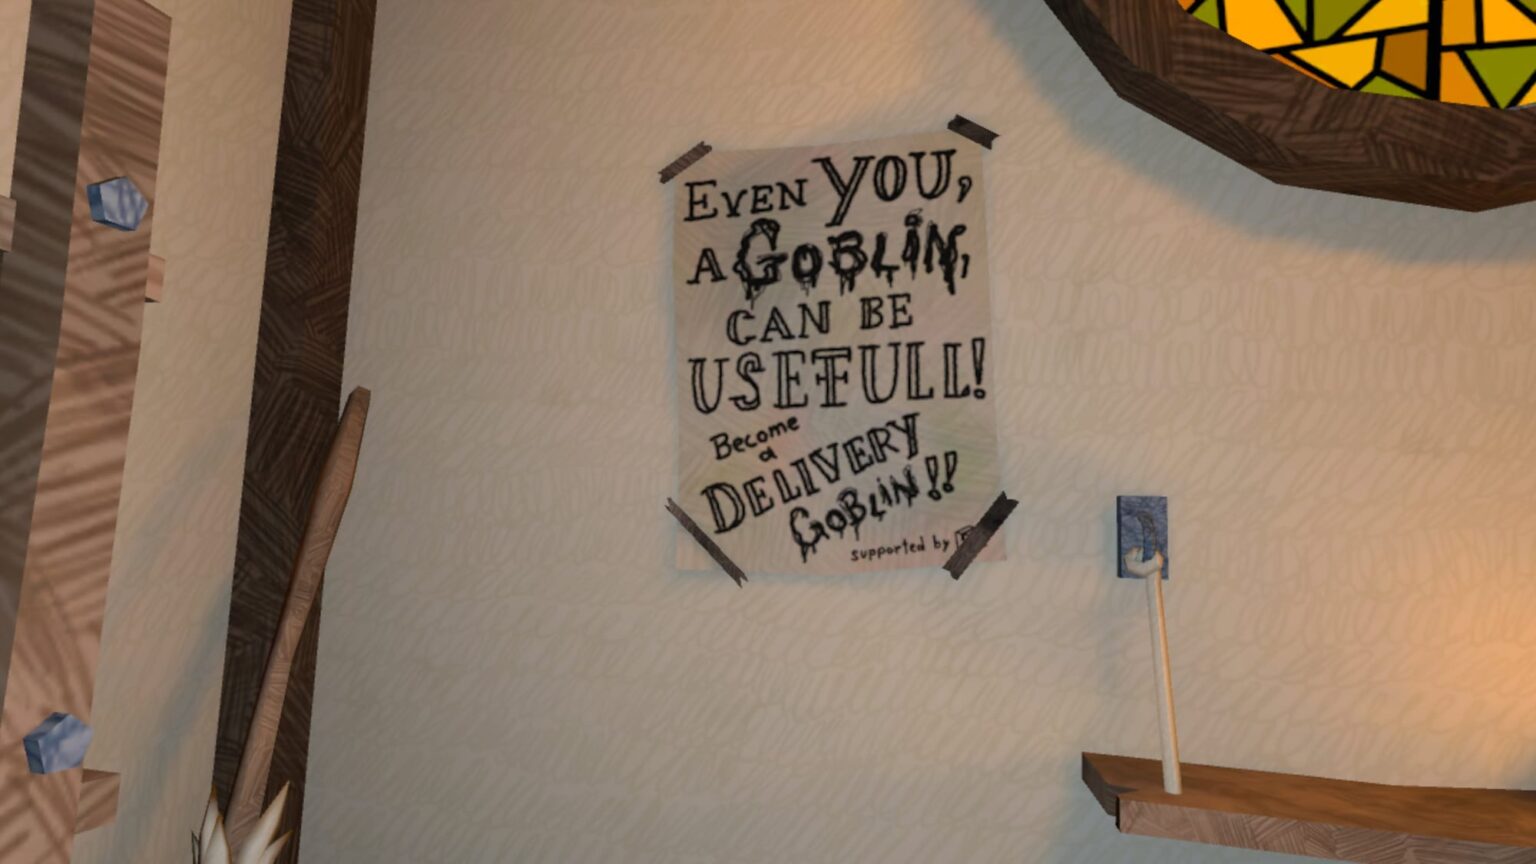 EVEN YOU,
A GOBLIN,
CAN BE
USEFULL!
Become
a
DELIVERY
GOBLIN!!
supported by